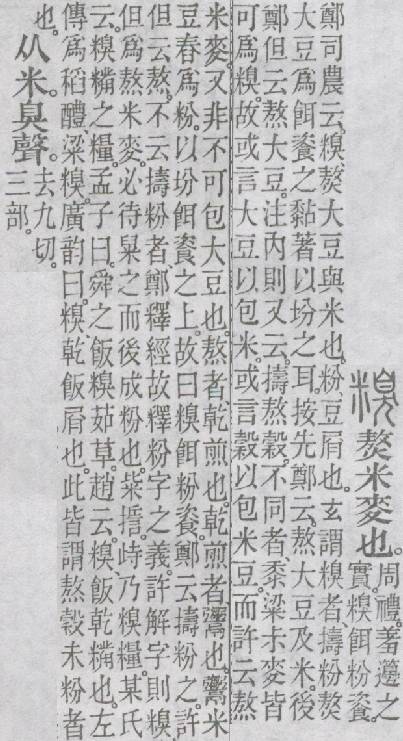 糗 熬米麥也。周禮。羞籩之
實。糗餌粉餈。
鄭司農云。糗熬大豆與米也。粉、豆屑也。玄謂糗者、擣粉熬
大豆爲餌餈之黏著以坋之耳。按先鄭云。熬大豆及米。後
鄭但云熬大豆。注內則又云。擣熬穀。不同者、黍粱尗麥皆
可爲糗。故或言大豆以包米。或言穀以包米豆。而許云熬
米麥。又非不可包大豆也。熬者、乾煎也。乾煎者、䰞也。䰞米
豆舂爲粉。以坋餌餈之上。故曰糗餌粉餈。鄭云擣粉之。許
但云熬。不云擣粉者、鄭釋經故釋粉字之義。許解字則糗
但爲熬米麥。必待臬之而後成粉也。粊誓。峙乃糗糧。某氏
云。糗糒之糧。孟子曰。舜之飯糗茹草。趙云。糗飯乾糒也。左
傳爲稻醴粱糗。廣韵曰。糗乾飯屑也。此皆謂熬穀未粉者
也。从米臭聲。去九切。
三部。